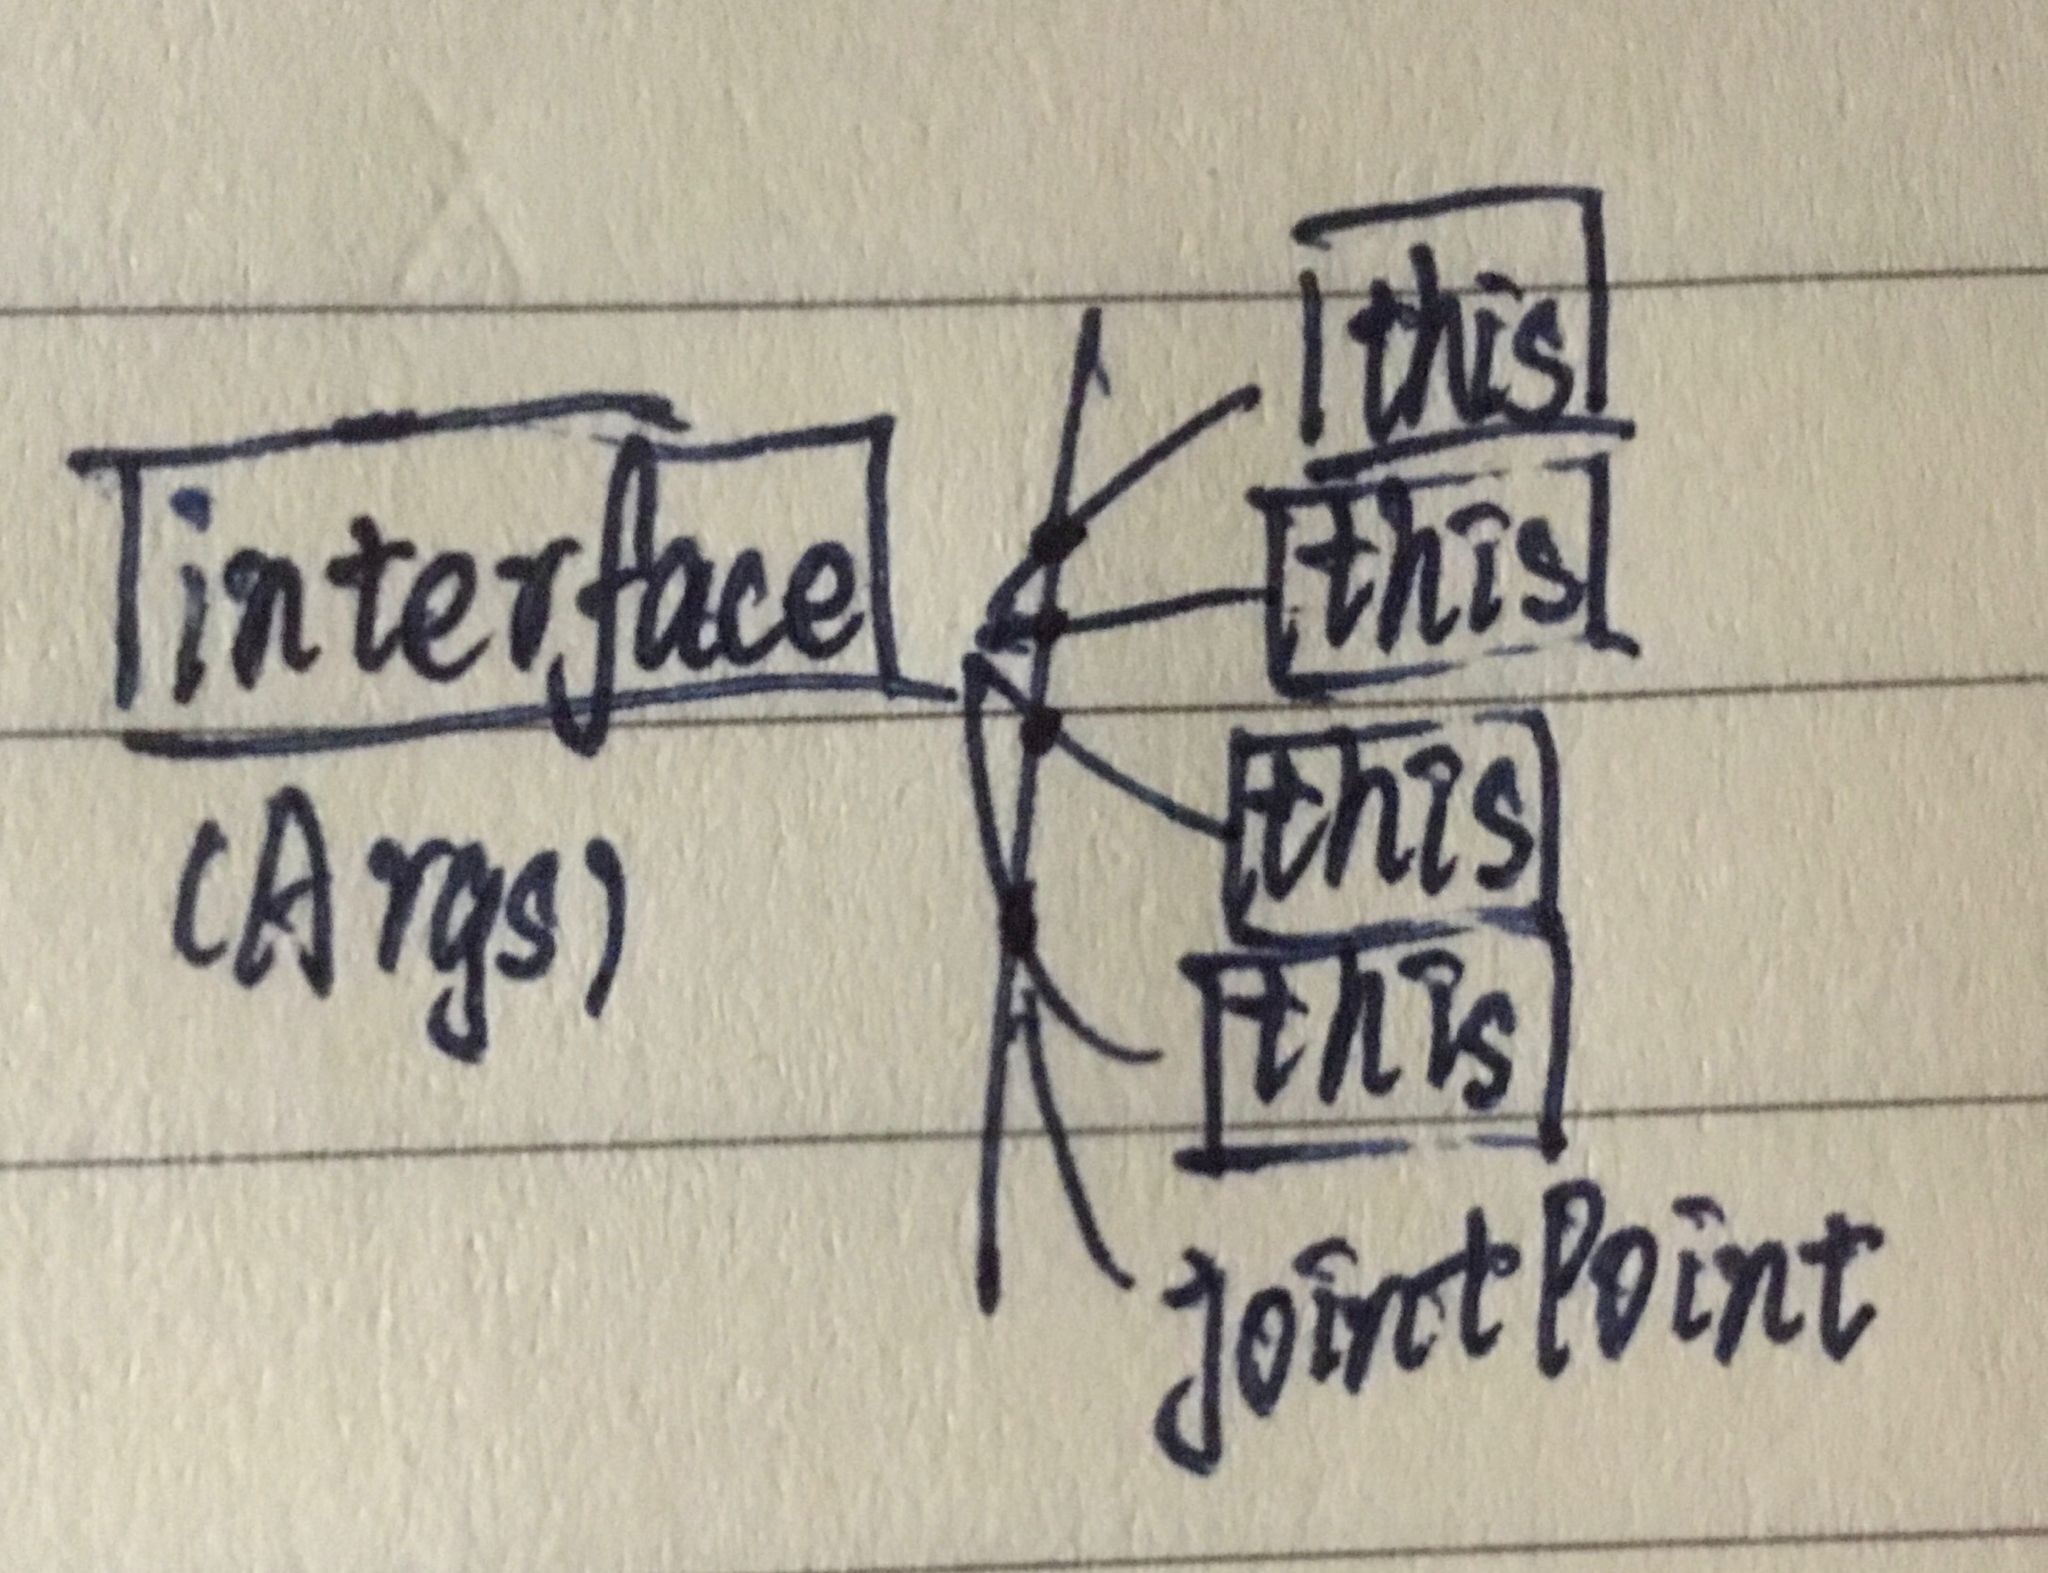 interface
(Args)
this
this
this
this
jointPoint